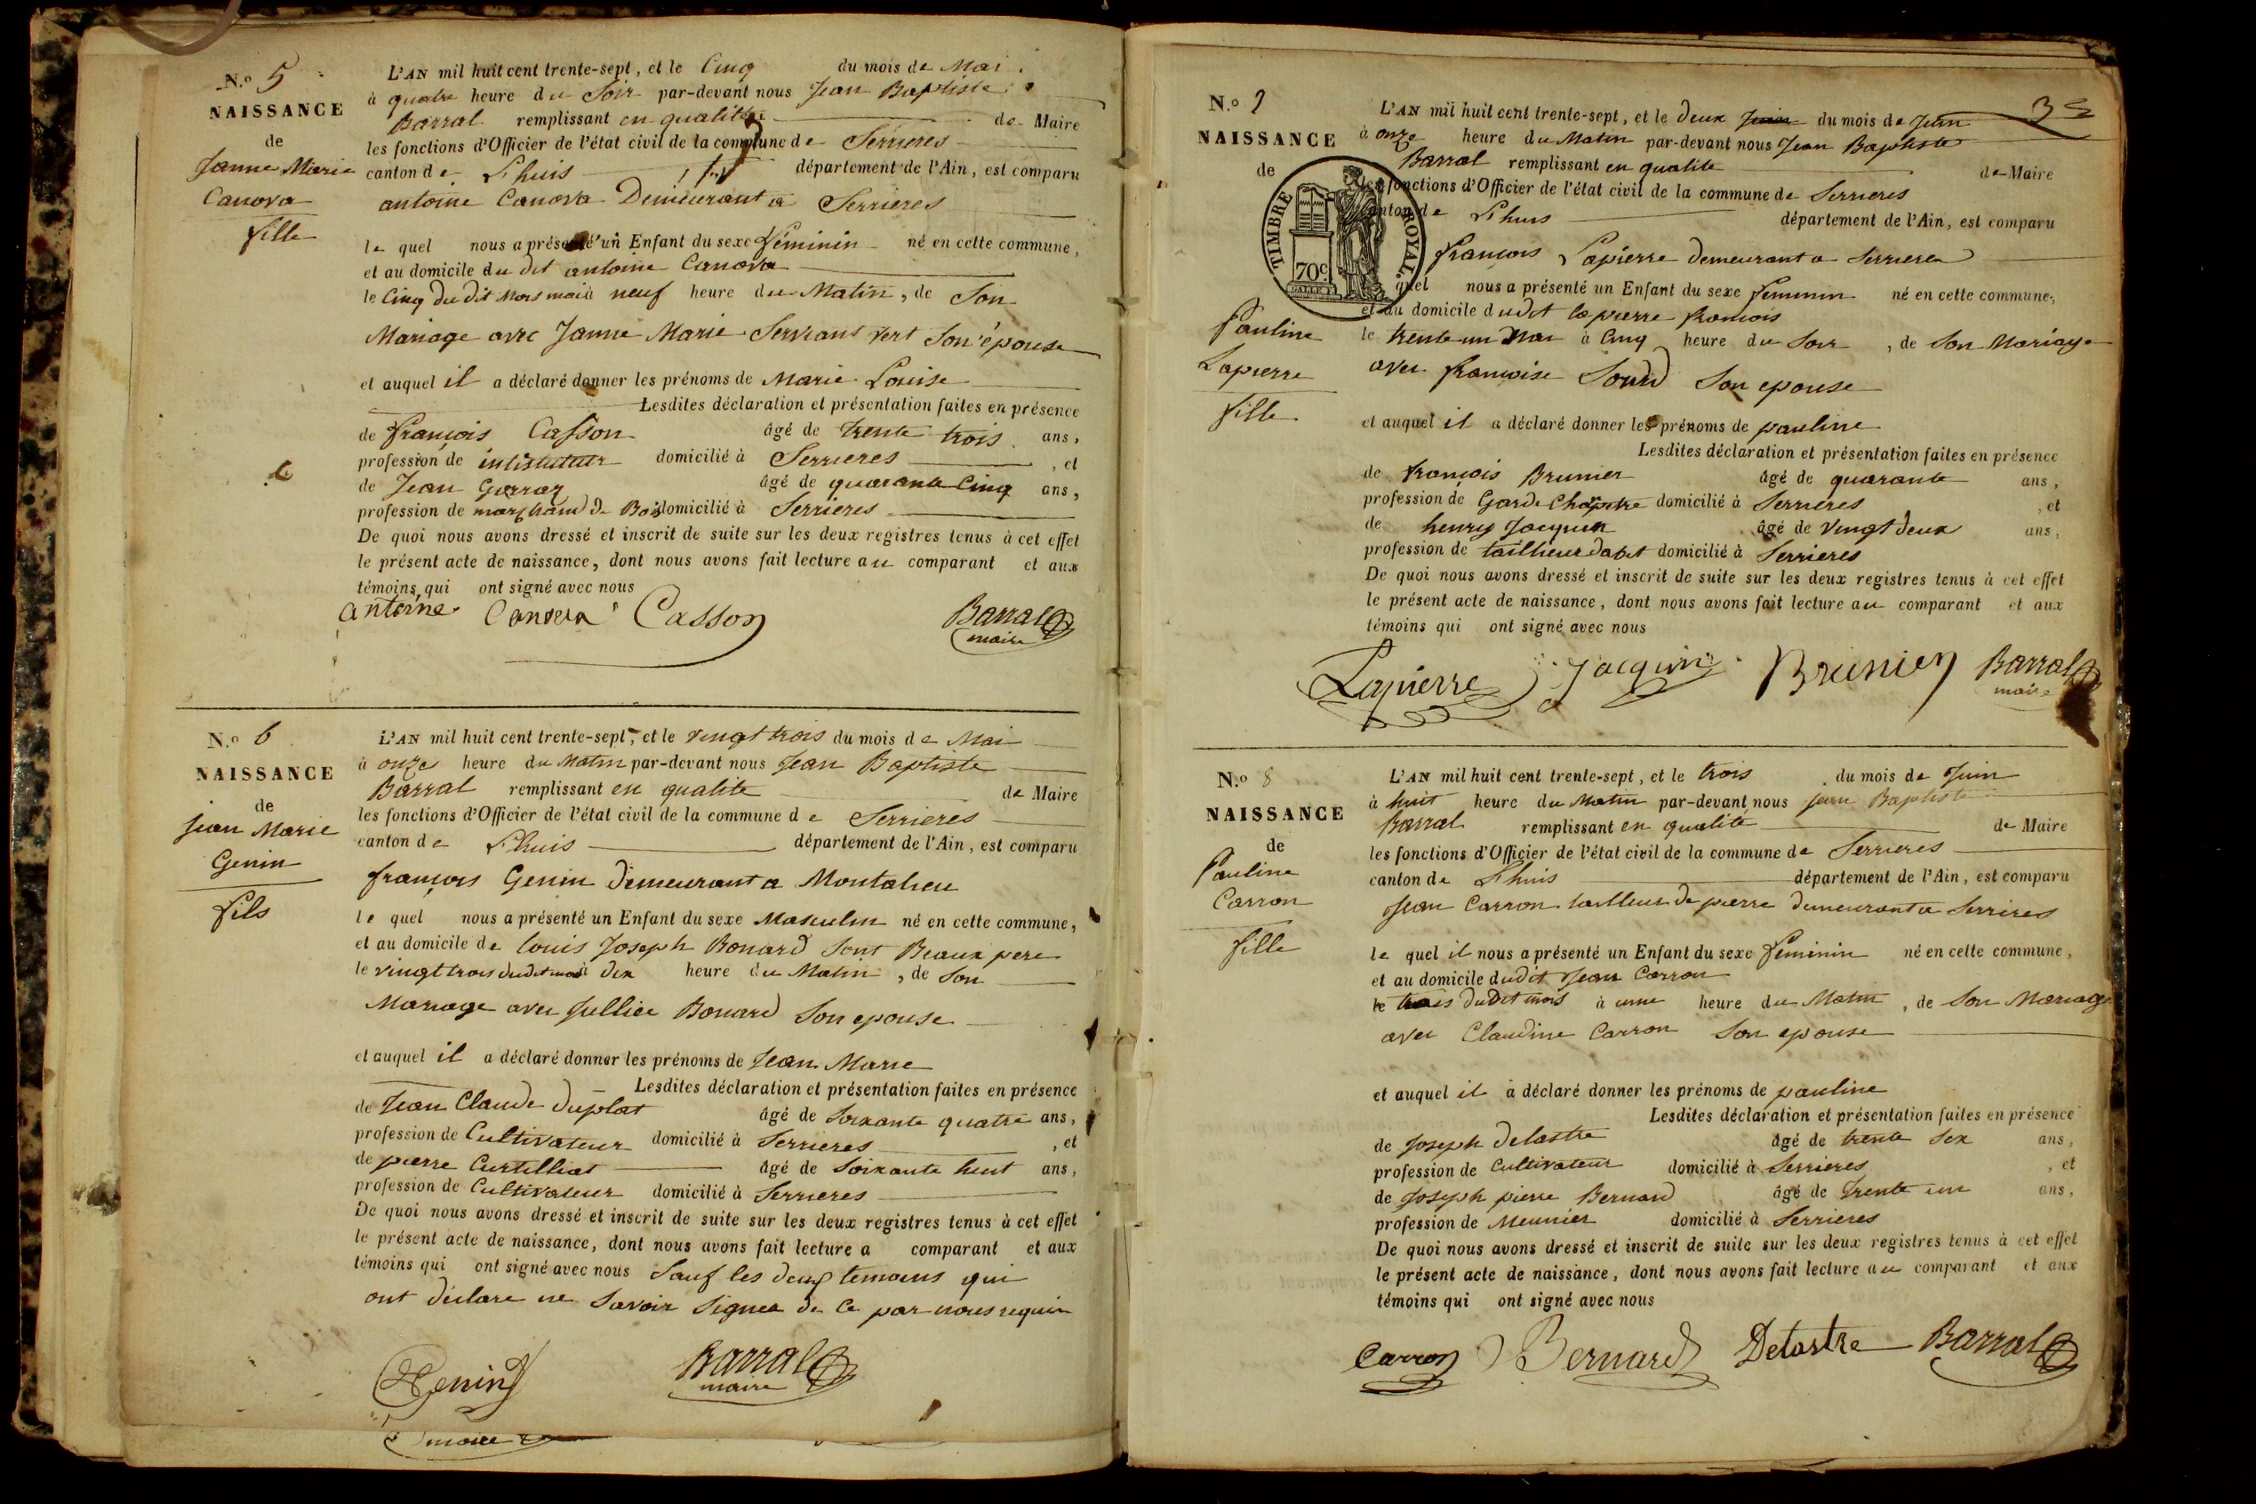 N.º 5
NAISSANCE
de
Janne Marie
Canova
fille
L'AN mil huit cent trente-sept, et le Cinq du mois de Mai
à quatre heure du Soir par-devant nous Jean Baptiste
Barral remplissant en qualité de Maire
les fonctions d'Officier de l'état civil de la commune de Serrieres
canton de Lhuis département de l'Ain, est comparu
antoine Canova Demeurant a Serrieres
le quel nous a présenté un Enfant du sexe féminin né en cette commune,
et au domicile du dit antoine Canova
le Cinq du dit Mois mai à neuf heure du Matin, de Son
Mariage avec Janne Marie Servant vert Son épouse
et auquel il a déclaré donner les prénoms de Marie Louise
Lesdites déclaration et présentation faites en présence
de françois Casson âgé de trente trois ans,
profession de intistuteur domicilié à Serrieres, et
de Jean âgé de quarante Cinq ans,
profession de marchand de Bois domicilié à Serrieres
De quoi nous avons dressé et inscrit de suite sur les deux registres tenus à cet effet
le présent acte de naissance, dont nous avons fait lecture au comparant et aux
témoins qui ont signé avec nous
antoine Canova Casson Barral
maire
N.º 6
NAISSANCE
de
jean Marie
Genin
fils
L'AN mil huit cent trente-sept, et le vingt trois du mois de Mai
à onze heure du Matin par-devant nous Jean Baptiste
Barral remplissant en qualite de Maire
les fonctions d'Officier de l'état civil de la commune de Serrieres
canton de Lhuis département de l'Ain, est comparu
françois Genin demeurant a Montalieu
le quel nous a présenté un Enfant du sexe Masculin né en cette commune,
et au domicile de louis Joseph Bonard Sont Beaux pere
le vingt trois dudit mois à dix heure du Matin, de Son
Mariage avec Jullice Bonard Son epouse
et auquel il a déclaré donner les prénoms de Jean Marie
Lesdites déclaration et présentation faites en présence
de Jean Claude duplat âgé de Soixante quatre ans,
profession de Cultivateur domicilié à Serrieres, et
de pierre Curtilliat âgé de Soixante huit ans,
profession de Cultivateur domicilié à Serrieres
De quoi nous avons dressé et inscrit de suite sur les deux registres tenus à cet effet
le présent acte de naissance, dont nous avons fait lecture a comparant et aux
témoins qui ont signé avec nous Sauf les deux temoins qui
ont déclare ne Savoir Signer de Ce par nous requis
Genin Barral
maire
maire
3
N.º 7
NAISSANCE
de
Pauline
Lapierre
fille
TIMBRE ROYAL.
70c
L'AN mil huit cent trente-sept, et le deux Juin du mois de Juin
à onze heure du Matin par-devant nous Jean Baptiste
Barral remplissant en qualite de Maire
les fonctions d'Officier de l'état civil de la commune de Serrieres
canton de Lhuis département de l'Ain, est comparu
françois Lapierre demeurant a Serrieres
quel nous a présenté un Enfant du sexe feminin né en cette commune,
et au domicile dudit lapierre francois
le trente un Mai à Cinq heure du Soir, de Son Mariage
avec françoise Sourd Son epouse
et auquel il a déclaré donner les prénoms de pauline
Lesdites déclaration et présentation faites en présence
de françois Brunier âgé de quarante ans,
profession de Garde Chapetre domicilié à Serrieres, et
de henry Jacquin âgé de vingt deux ans,
profession de taillieur dabit domicilié à Serrieres
De quoi nous avons dressé et inscrit de suite sur les deux registres tenus à cet effet
le présent acte de naissance, dont nous avons fait lecture au comparant et aux
témoins qui ont signé avec nous
Lapierre Jacquin Brunier Barral
maire
N.º 8
NAISSANCE
de
Pauline
Carron
fille
L'AN mil huit cent trente-sept, et le trois du mois de Juin
à huit heure du Matin par-devant nous jean Baptiste
Barral remplissant en qualite de Maire
les fonctions d'Officier de l'état civil de la commune de Serrieres
canton de Lhuis département de l'Ain, est comparu
Jean Carron tailleur de pierre demeurant a Serrires
le quel il nous a présenté un Enfant du sexe féminin né en cette commune,
et au domicile dudit Jean Carron
le trois dudit mois à une heure du Matin, de Son Mariage
avec Claudine Carron Son epouse
et auquel il a déclaré donner les prénoms de pauline
Lesdites déclaration et présentation faites en présence
de Joseph delastre âgé de trente six ans,
profession de Cultivateur domicilié à Serrieres, et
de Joseph pierre Bernard âgé de trente un ans,
profession de Meunier domicilié à Serrieres
De quoi nous avons dressé et inscrit de suite sur les deux registres tenus à cet effet
le présent acte de naissance, dont nous avons fait lecture au comparant et aux
témoins qui ont signé avec nous
Carron Bernard Delastre Barral